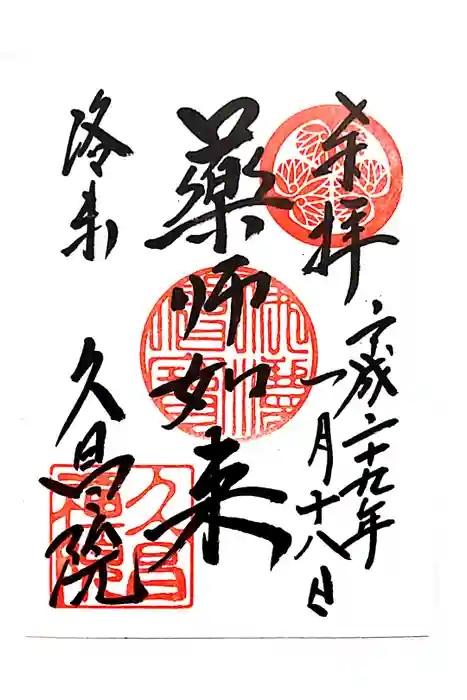 奉拝
平成二十九年
一月十八日
藥師如来
洛東
久昌院
久昌
禅院